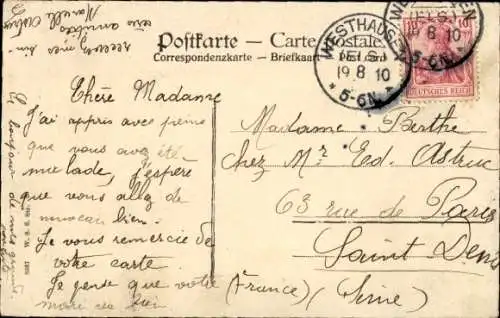 Postkarte - Carte Postale
Correspondenzkarte - Briefkaart -
WESTHAUSEN
(ELS.)
19 8 10
* 5-6N. *
WESTHAUSEN
(ELS.)
19 8 10
* 5-6N. *
10
DEUTSCHES REICH
Chère Madame
J'ai appris avec peine
que vous avez été
malade, J'espère
que vous allez de
nouveau bien.
Je vous remercie de
votre carte
Je pense que votre
mari va bien
recevez mes
amitiés
Madame Berthe
chez Mr Ed. Astruc
63 rue de Paris
Saint Denis
(France) (Seine)